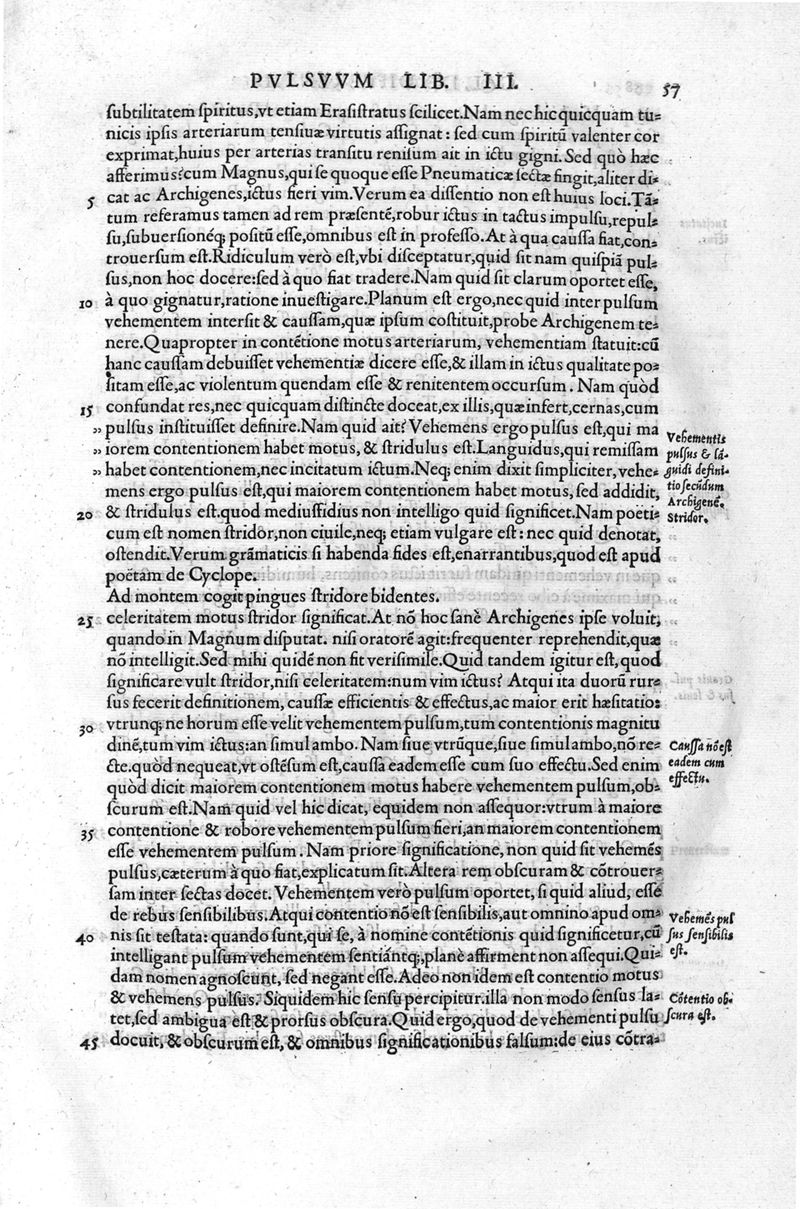 PVLSVVM LIB. III. 57
ſubtilitatem ſpiritus,vt etiam Eraſiſtratus ſcilicet.Nam nec hic quicquam tu⸗
nicis ipſis arteriarum tenſiuæ virtutis aſſignat: ſed cum ſpiritū valenter cor
exprimat,huius per arterias tranſitu reniſum ait in ictu gigni. Sed quò hæc
afferimus?cum Magnus,qui ſe quoque eſſe Pneumaticæ ſectæ fingit,aliter di⸗
5 cat ac Archigenes,ictus fieri vim.Verum ea diſſentio non eſt huius loci.Tā⸗
tum referamus tamen ad rem præſentē,robur ictus in tactus impulſu,repul⸗
ſu,ſubuerſionéq; poſitū eſſe,omnibus eſt in profeſſo.At à qua cauſſa fiat,con⸗
trouerſum eſt.Ridiculum verò eſt,vbi diſceptatur,quid ſit nam quiſpiā pul⸗
ſus,non hoc docere:ſed à quo fiat tradere.Nam quid ſit clarum oportet eſſe,
10 à quo gignatur,ratione inueſtigare.Planum eſt ergo,nec quid inter pulſum
vehementem interſit & cauſſam,quæ ipſum cōſtituit,probe Archigenem te⸗
nere.Quapropter in contētione motus arteriarum, vehementiam ſtatuit:cū
hanc cauſſam debuiſſet vehementiæ dicere eſſe,& illam in ictus qualitate po⸗
ſitam eſſe,ac violentum quendam eſſe & renitentem occurſum. Nam quòd
15 confundat res,nec quicquam diſtincte doceat,ex illis,quæ infert,cernas,cum
„ pulſus inſtituiſſet definire.Nam quid ait? Vehemens ergo pulſus eſt,qui ma
„ iorem contentionem habet motus, & ſtridulus eſt.Languidus,qui remiſſam
„ habet contentionem,nec incitatum ictum.Neq; enim dixit ſimpliciter,vehe⸗
mens ergo pulſus eſt,qui maiorem contentionem habet motus,ſed addidit,
20 & ſtridulus eſt.quod mediuſfidius non intelligo quid ſignificet.Nam poëti⸗
cum eſt nomen ſtridor,non ciuile,neq; etiam vulgare eſt: nec quid denotat,
oſtendit.Verum grāmaticis ſi habenda fides eſt,enarrantibus,quod eſt apud
poëtam de Cyclope.
Ad montem cogit pingues ſtridore bidentes.
25 celeritatem motus ſtridor ſignificat.At nō hoc ſanè Archigenes ipſe voluit,
quando in Magnum diſputat. niſi oratorē agit:frequenter reprehendit,quæ
nō intelligit.Sed mihi quidē non fit veriſimile.Quid tandem igitur eſt, quod
ſignificare vult ſtridor,niſi celeritatem:num vim ictus? Atqui ita duorū rur⸗
ſus fecerit definitionem, cauſſæ efficientis & effectus,ac maior erit hæſitatio:
30 vtrunq; ne horum eſſe velit vehementem pulſum,tum contentionis magnitu
dinē,tum vim ictus:an ſimul ambo. Nam ſiue vtrūque,ſiue ſimul ambo,nō re⸗
cte.quòd nequeat,vt oſtēſum eſt,cauſſa eadem eſſe cum ſuo effectu.Sed enim
quòd dicit maiorem contentionem motus habere vehementem pulſum,ob⸗
ſcurum eſt.Nam quid vel hic dicat, equidem non aſſequor:vtrum à maiore
35 contentione & robore vehementem pulſum fieri,an maiorem contentionem
eſſe vehementem pulſum. Nam priore ſignificatione,non quid ſit vehemēs
pulſus,cæterum à quo fiat,explicatum ſit.Altera rem obſcuram & cōtrouer⸗
ſam inter ſectas docet. Vehementem verò pulſum oportet, ſi quid aliud, eſſe
de rebus ſenſibilibus.Atqui contentio nō eſt ſenſibilis,aut omnino apud om⸗
40 nis ſit teſtata: quando ſunt,qui ſe, à nomine contētionis quid ſignificetur,cū
intelligant pulſum vehementem ſentiántq;,planè affirment non aſſequi.Qui⸗
dam nomen agnoſcunt, ſed negant eſſe.Adeo non idem eſt contentio motus
& vehemens pulſus. Siquidem hic ſenſu percipitur:illa non modo ſenſus la⸗
tet,ſed ambigua eſt & prorſus obſcura.Quid ergo,quod de vehementi pulſu
45 docuit, & obſcurum eſt, & omnibus ſignificationibus falſum:de eius cōtra⸗
Vehementis
pulſus & lā⸗
guidi defini⸗
tio ſecūdum
Archigenē.
Stridor.
Cauſſa nō eſt
eadem cum
effectu.
Vehemēs pul
ſus ſenſibilis
eſt.
Cōtentio ob⸗
ſcura eſt.